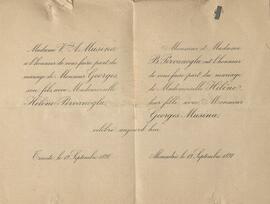 Madame Vve A. Musina
a l'honneur de vous faire part du
mariage de Monsieur Georges
son fils, avec Mademoiselle
Hélène Pervanoglu
Monsieur et Madame
B. Pervanoglu ont l'honneur
de vous faire part du mariage
de Mademoiselle Hélène
leur fille avec Monsieur
Georges Musina
célébré aujourd'hui
Trieste le 12 Septembre
Alexandrie le 12 Septembre